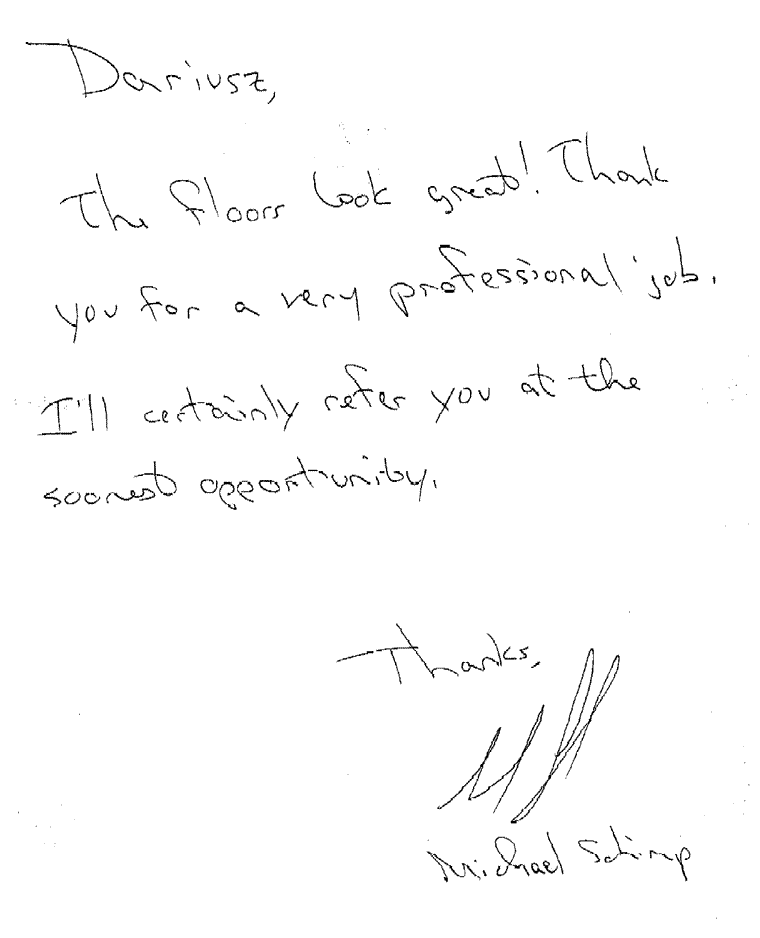 Dariusz,
The floors look great! Thank
you for a very professional job.
I'll certainly refer you at the
soonest opportunity.
Thanks,
Michael